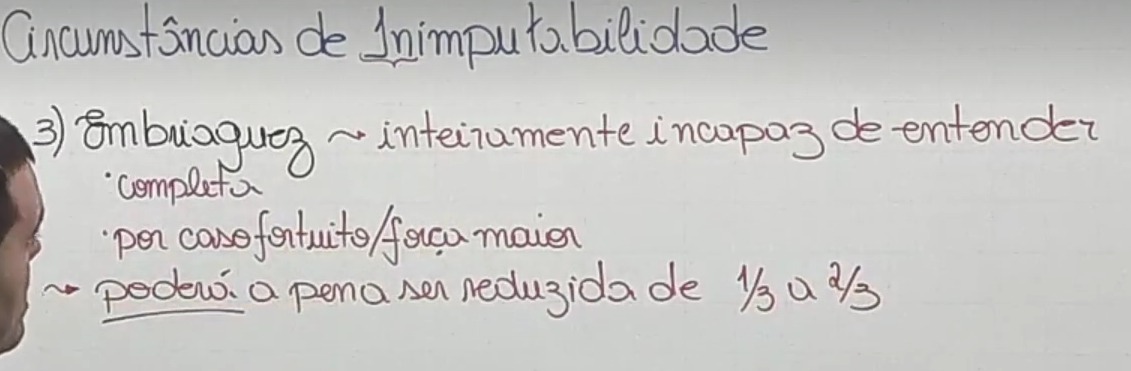 Circunstâncias de Inimputabilidade
3) Embriaguez ~ inteiramente incapaz de entender
· completa
· por caso fortuito/força maior
~ poderá a pena ser reduzida de 1/3 a 2/3